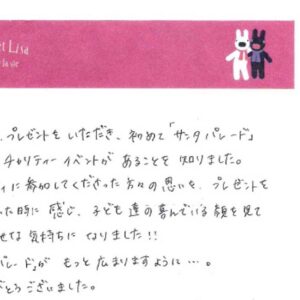 et Lisa
la vie
プレゼントをいただき、初めて「サンタパレード」
チャリティーイベントがあることを知りました。
ィに参加してくださった方々の思いを、プレゼントを
った時に感じ、子ども達の喜んでいる顔を見て
せな気持ちになりました!!
パレード」が もっと広まりますように…。
がとうございました。